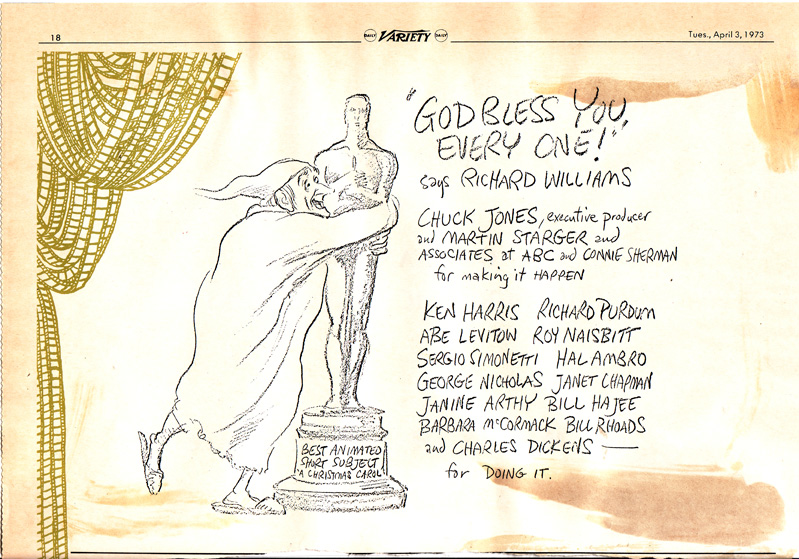 18
DAILY VARIETY DAILY
Tues., April 3, 1973
"GOD BLESS YOU,
EVERY ONE!"
says RICHARD WILLIAMS
CHUCK JONES, executive producer
and MARTIN STARGER and
ASSOCIATES at ABC and CONNIE SHERMAN
for making it HAPPEN
KEN HARRIS RICHARD PURDUM
ABE LEVITOW ROY NAISBITT
SERGIO SIMONETTI HAL AMBRO
GEORGE NICHOLAS JANET CHAPMAN
JANINE ARTHY BILL HAJEE
BARBARA McCORMACK BILL RHOADS
and CHARLES DICKENS —
for DOING IT.
BEST ANIMATED
SHORT SUBJECT
"A CHRISTMAS CAROL"